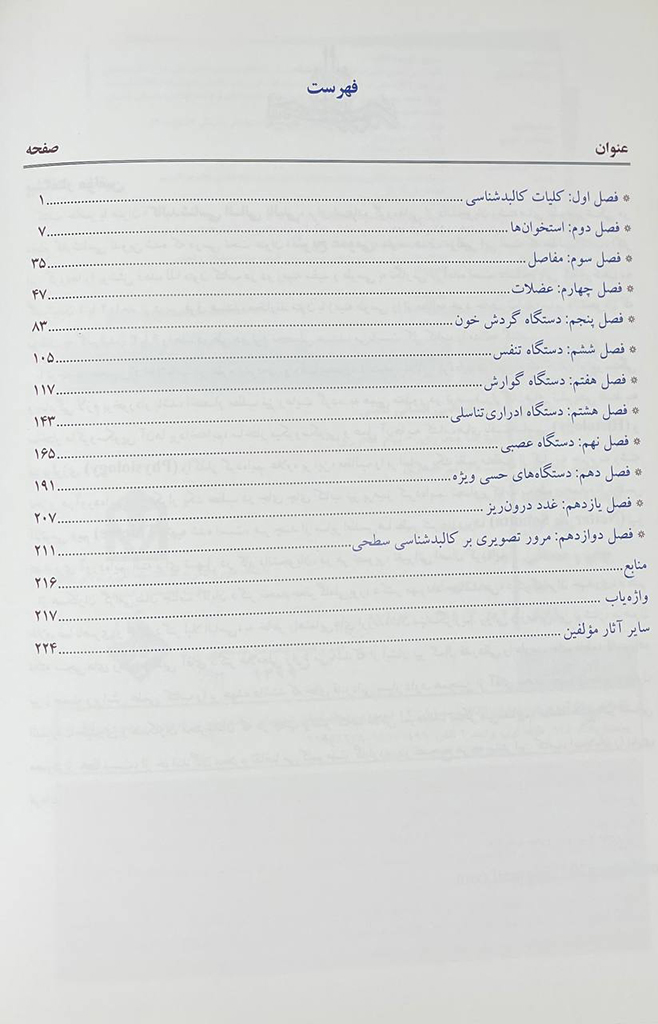 فهرست
عنوان صفحه
* فصل اول: کلیات کالبدشناسی ........ ۱
* فصل دوم: استخوان‌ها ........ ۷
* فصل سوم: مفاصل ........ ۳۵
* فصل چهارم: عضلات ........ ۴۷
* فصل پنجم: دستگاه گردش خون ........ ۸۳
* فصل ششم: دستگاه تنفس ........ ۱۰۵
* فصل هفتم: دستگاه گوارش ........ ۱۱۷
* فصل هشتم: دستگاه ادراری‌تناسلی ........ ۱۴۳
* فصل نهم: دستگاه عصبی ........ ۱۶۵
* فصل دهم: دستگاه‌های حسی ویژه ........ ۱۹۱
* فصل یازدهم: غدد درون‌ریز ........ ۲۰۷
* فصل دوازدهم: مرور تصویری بر کالبدشناسی سطحی ........ ۲۱۱
منابع ........ ۲۱۶
واژه‌یاب ........ ۲۱۷
سایر آثار مؤلفین ........ ۲۲۴